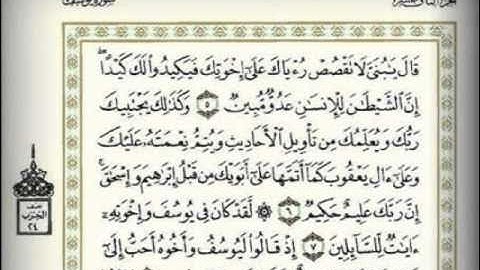 سورة يوسف
قَالَ يَٰبُنَىَّ لَا تَقْصُصْ رُءْيَاكَ عَلَىٰٓ إِخْوَتِكَ فَيَكِيدُوا۟ لَكَ كَيْدًا ۖ
إِنَّ ٱلشَّيْطَٰنَ لِلْإِنسَٰنِ عَدُوٌّ مُّبِينٌ ٥ وَكَذَٰلِكَ يَجْتَبِيكَ
رَبُّكَ وَيُعَلِّمُكَ مِن تَأْوِيلِ ٱلْأَحَادِيثِ وَيُتِمُّ نِعْمَتَهُۥ عَلَيْكَ
وَعَلَىٰٓ ءَالِ يَعْقُوبَ كَمَآ أَتَمَّهَا عَلَىٰٓ أَبَوَيْكَ مِن قَبْلُ إِبْرَٰهِيمَ وَإِسْحَٰقَ ۚ
إِنَّ رَبَّكَ عَلِيمٌ حَكِيمٌ ٦ ۞ لَّقَدْ كَانَ فِى يُوسُفَ وَإِخْوَتِهِۦٓ
ءَايَٰتٌ لِّلسَّآئِلِينَ ٧ إِذْ قَالُوا۟ لَيُوسُفُ وَأَخُوهُ أَحَبُّ إِلَىٰٓ
نصف
الحزب
٢٤